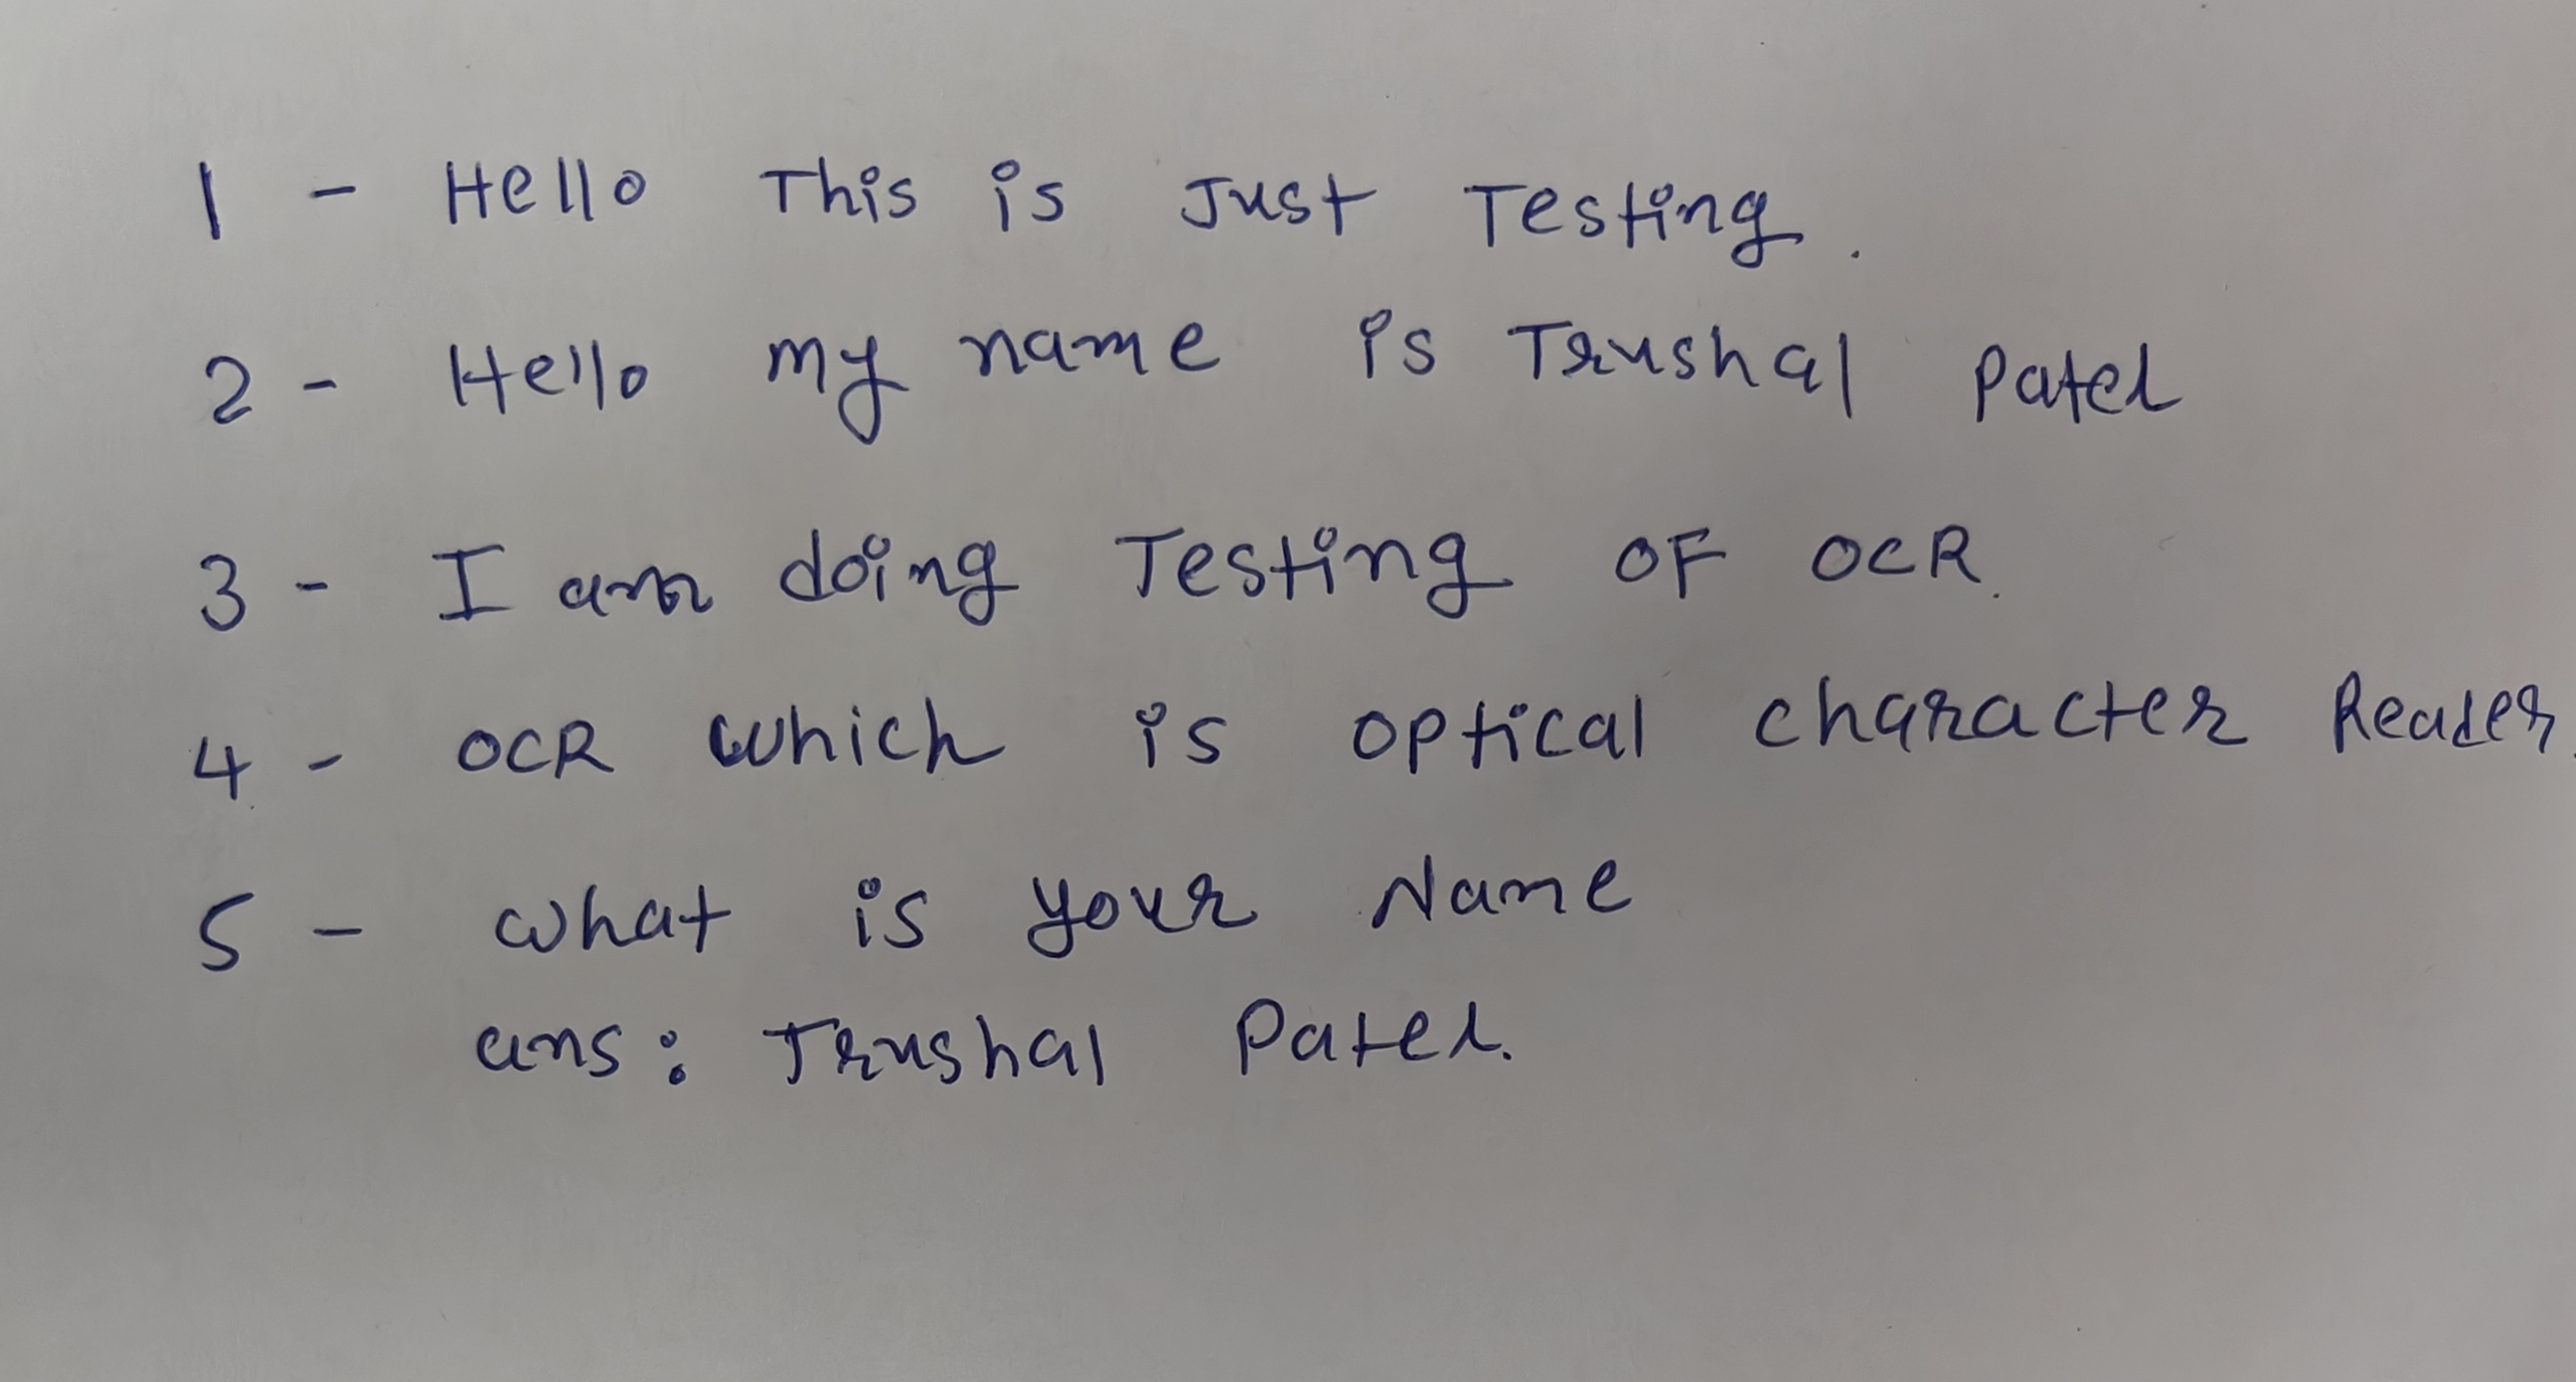 1 - Hello This is Just Testing.
2 - Hello my name is Trushal Patel
3 - I am doing Testing OF OCR.
4 - OCR which is optical character Reader.
5 - what is your Name
ans: Trushal Patel.